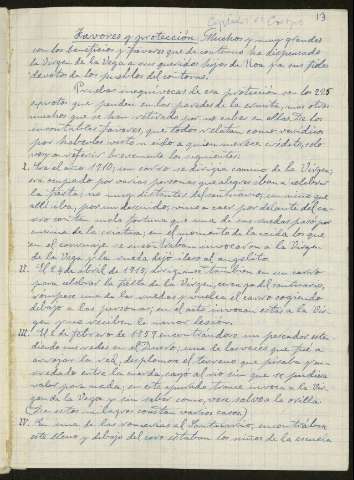 13
Favores y protección. Muchos y muy grandes
son los beneficios y favores que de continuo ha dispensado
la Virgen de la Vega a sus queridos hijos de Roa y a sus fieles
devotos de los pueblos del contorno.
Pruebas inequívocas de esa protección son los 295
exvotos que penden en las paredes de la ermita, mas otros
muchos que se han retirado por no caber en ellas. De los
incontables favores, que todos relatan como venidos
por haberlos visto u oido a quien merece crédito, solo
voy a referir brevemente los siguientes:
I. En el año 1910, un carro se dirigía camino de la Virgen,
era ocupado por varias personas que alegres iban a celebrar
la fiesta; no muy distantes del santuario, un niño que
allí iba, por un descuido, vino a caer por delante del ca-
rro con tan mala fortuna que una de sus ruedas pasó por
encima de la criatura; en el momento de la caida los que
en el carruaje se encontraban invocaron a la Virgen
de la Vega y la rueda dejó ileso al angelito.
II. El 24 de abril de 1910, dirigianse también en un carro
para celebrar la fiesta de la Virgen, cerca ya del santuario,
rompese una de las ruedas y vuelca el carro cogiendo
debajo a las personas; en el acto invocan estas a la Vir-
gen y no reciben la menor lesión.
III. El 6 de febrero de 1927, encontrándose un pescador ten-
diendo sus redes en el Duero, una de las veces que fue a
arrojar la red, desplomose el terreno que pisaba y en-
redado entre la cuerda, cayó al rio sin que se pudiera
valer para nada; en este apurado trance invoca a la Vir-
gen de la Vega y sin saber como, vese salvo a la orilla.
(De estos milagros constan varios casos)
IV. En una de las romerias al Santuario, encontrábase
este lleno y debajo del coro estaban los niños de la escuela